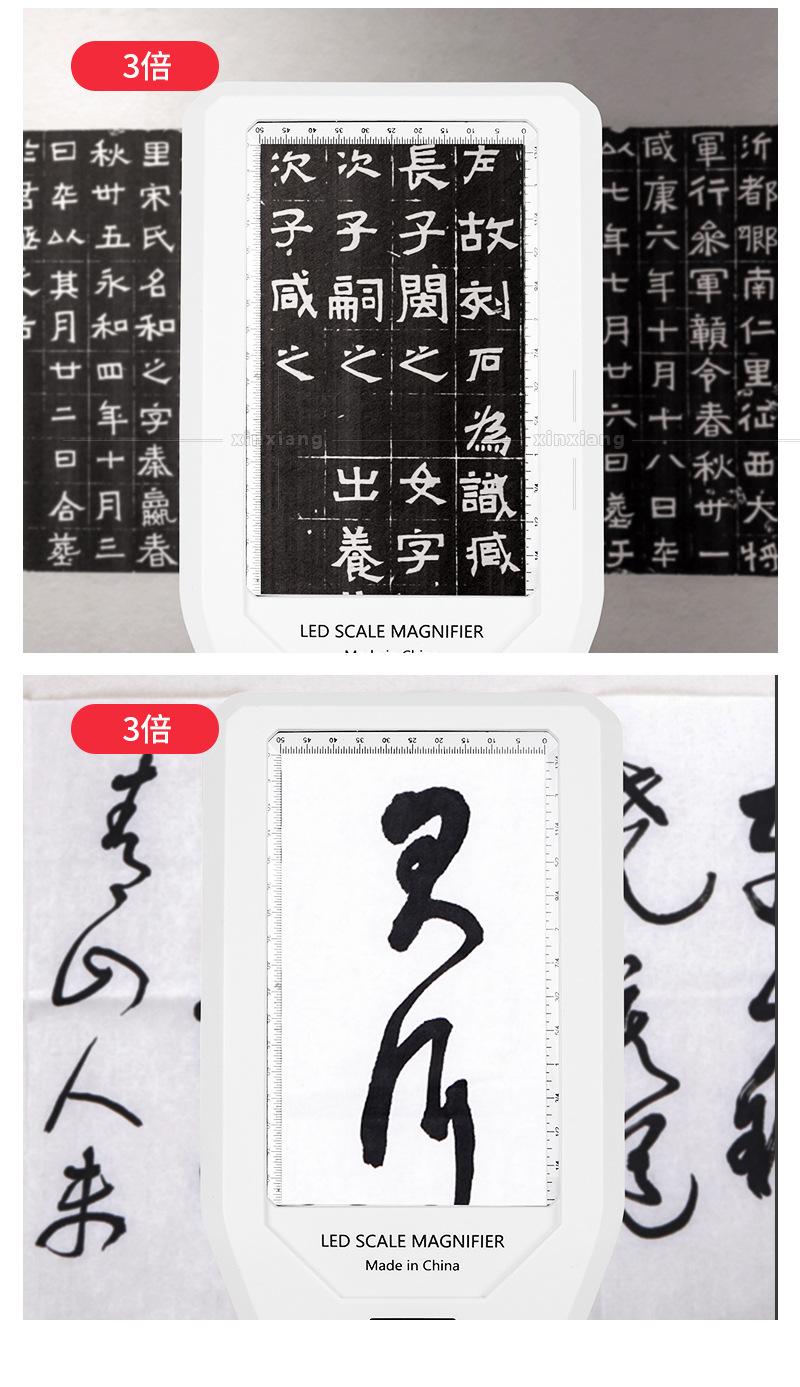 3倍
沂都鄉南仁里征西大將
軍行參軍贛令春秋卅一
咸康六年十月十八日卒
以七年七月廿六日塟于
50 45 40 35 30 25 20 15 10 5 0
左故刻石為識臧
長子閩之 女字
次子嗣之 出養
次子咸之
里宋氏名和之字秦嬴春
秋卅五永和四年十月三
日卒以其月廿二日合塟
xinxiang xinxiang
LED SCALE MAGNIFIER
3倍
50 45 40 35 30 25 20 15 10 5 0
青山人未
LED SCALE MAGNIFIER
Made in China